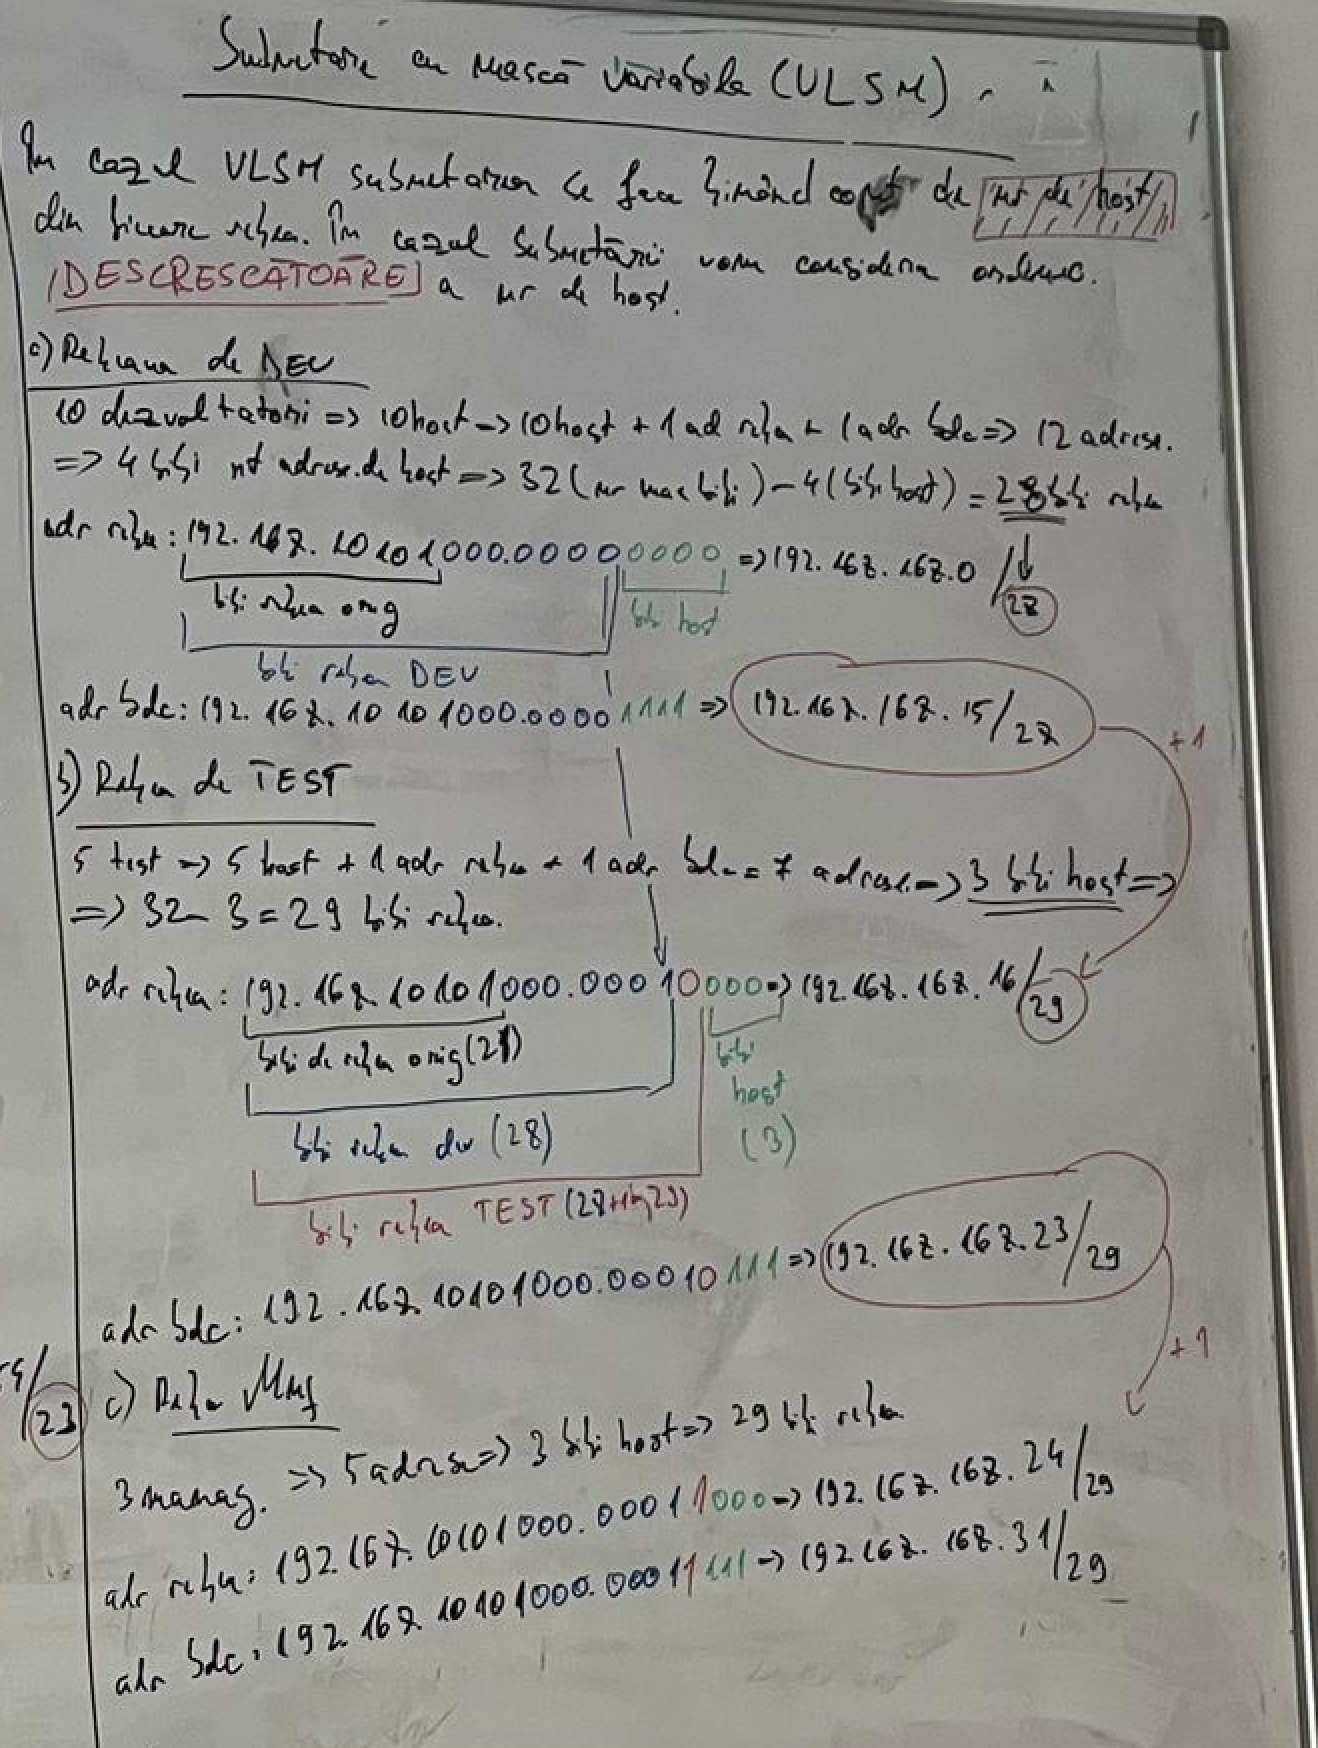 Subnetare cu mască variabila (VLSM)
În cazul VLSM subnetarea se face ținând cont de nr de host
din fiecare rețea. În cazul subnetării vom considera ordinea
DESCRESCĂTOARE a nr de host.
a) Rețeaua de DEV
10 dezvoltatori => 10 host -> 10 host + 1 ad rețea + 1 adr bdc => 12 adrese.
=> 4 biți pt adrese de host => 32 (nr max biți) - 4 (biți host) = 28 biți rețea
adr rețea: 192.168.10101000.00000000 => 192.168.168.0/28
biți rețea orig
biți host
biți rețea DEV
adr bdc: 192.168.10101000.00001111 => 192.168.168.15/28
+1
b) Rețea de TEST
5 test => 5 host + 1 adr rețea + 1 adr bdc = 7 adrese -> 3 biți host =>
=> 32 - 3 = 29 biți rețea.
adr rețea: 192.168.10101000.00010000 => 192.168.168.16/29
biți de rețea orig (21)
biți host (3)
biți rețea dev (28)
biți rețea TEST (28+1=29)
adr bdc: 192.168.10101000.00010111 => 192.168.168.23/29
+1
/23
c) Rețea
3 manag. => 5 adrese => 3 biți host => 29 biți rețea
adr rețea: 192.168.10101000.00011000 -> 192.168.168.24/29
adr bdc: 192.168.10101000.00011111 -> 192.168.168.31/29